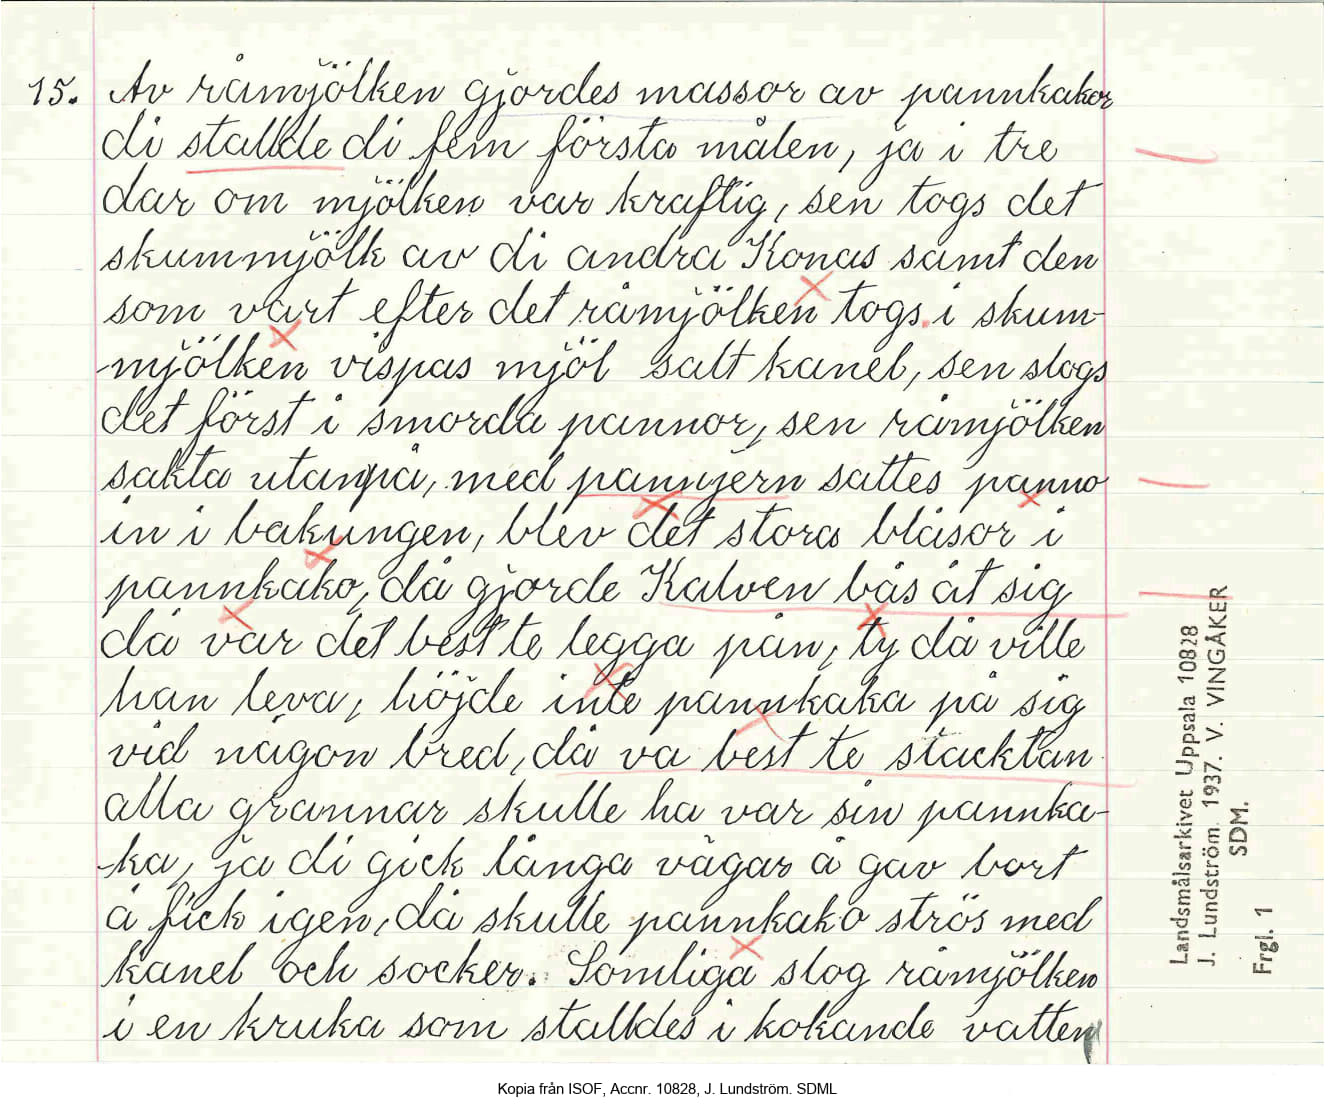 15. Av råmjölken gjordes massor av pannkakor
di stallde di fem första målen, ja i tre
dar om mjölken var kraftig, sen togs det
skummjölk av di andra Konas samt den
som vart efter det råmjölken togs. i skum-
mjölken vispas mjöl salt kanel, sen slogs
det först i smorda pannor, sen råmjölken
sakta utanpå, med pannjern sattes panno
in i bakungen, blev det stora blåsor i
pannkako, då gjorde Kalven bås åt sig
då var det best te legga pån, ty då ville
han leva, höjde inte pannkaka på sig
vid någon bred, då va best te stacktan
alla grannar skulle ha var sin pannka-
-ka, ja di gick långa vägar å gav bort
å fick igen, då skulle pannkako strös med
kanel och socker. Somliga slog råmjölken
i en kruka som stalldes i kokande vatten
Landsmålsarkivet Uppsala 10828
J. Lundström. 1937. V. VINGÅKER
SDM.
Frgl. 1
Kopia från ISOF, Accnr. 10828, J. Lundström. SDML